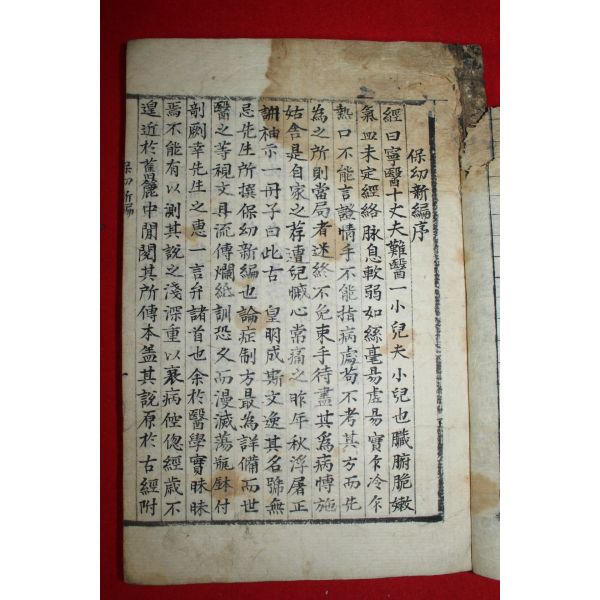 保幼新編序
經曰寧醫十丈夫難醫一小兒夫小兒也臟腑脆嫩
氣血未定經絡脉息軟弱如絲毫易虛易實乍冷乍
熱口不能言證情手不能指病處苟不考其方而先
為之所則當局者迷終不免束手待盡其為病愽施
姑舍是自家之荐遭兒慽心常痛之昨年秋浮屠正
訓袖示一冊子曰此古 皇明成斯文逸其名號無
忌先生所撰保幼新編也論症制方最為詳備而世
醫之等視文具流傳爛紙訓恐久而漫滅蕩瓶鉢付
剞劂幸先生之惠一言弁諸首也余於醫學實昧昧
焉不能有以測其說之淺深重以衰病倥偬經歲不
遑近於舊麓中閒閱其所傳本盖其說原於古經附
保幼新編